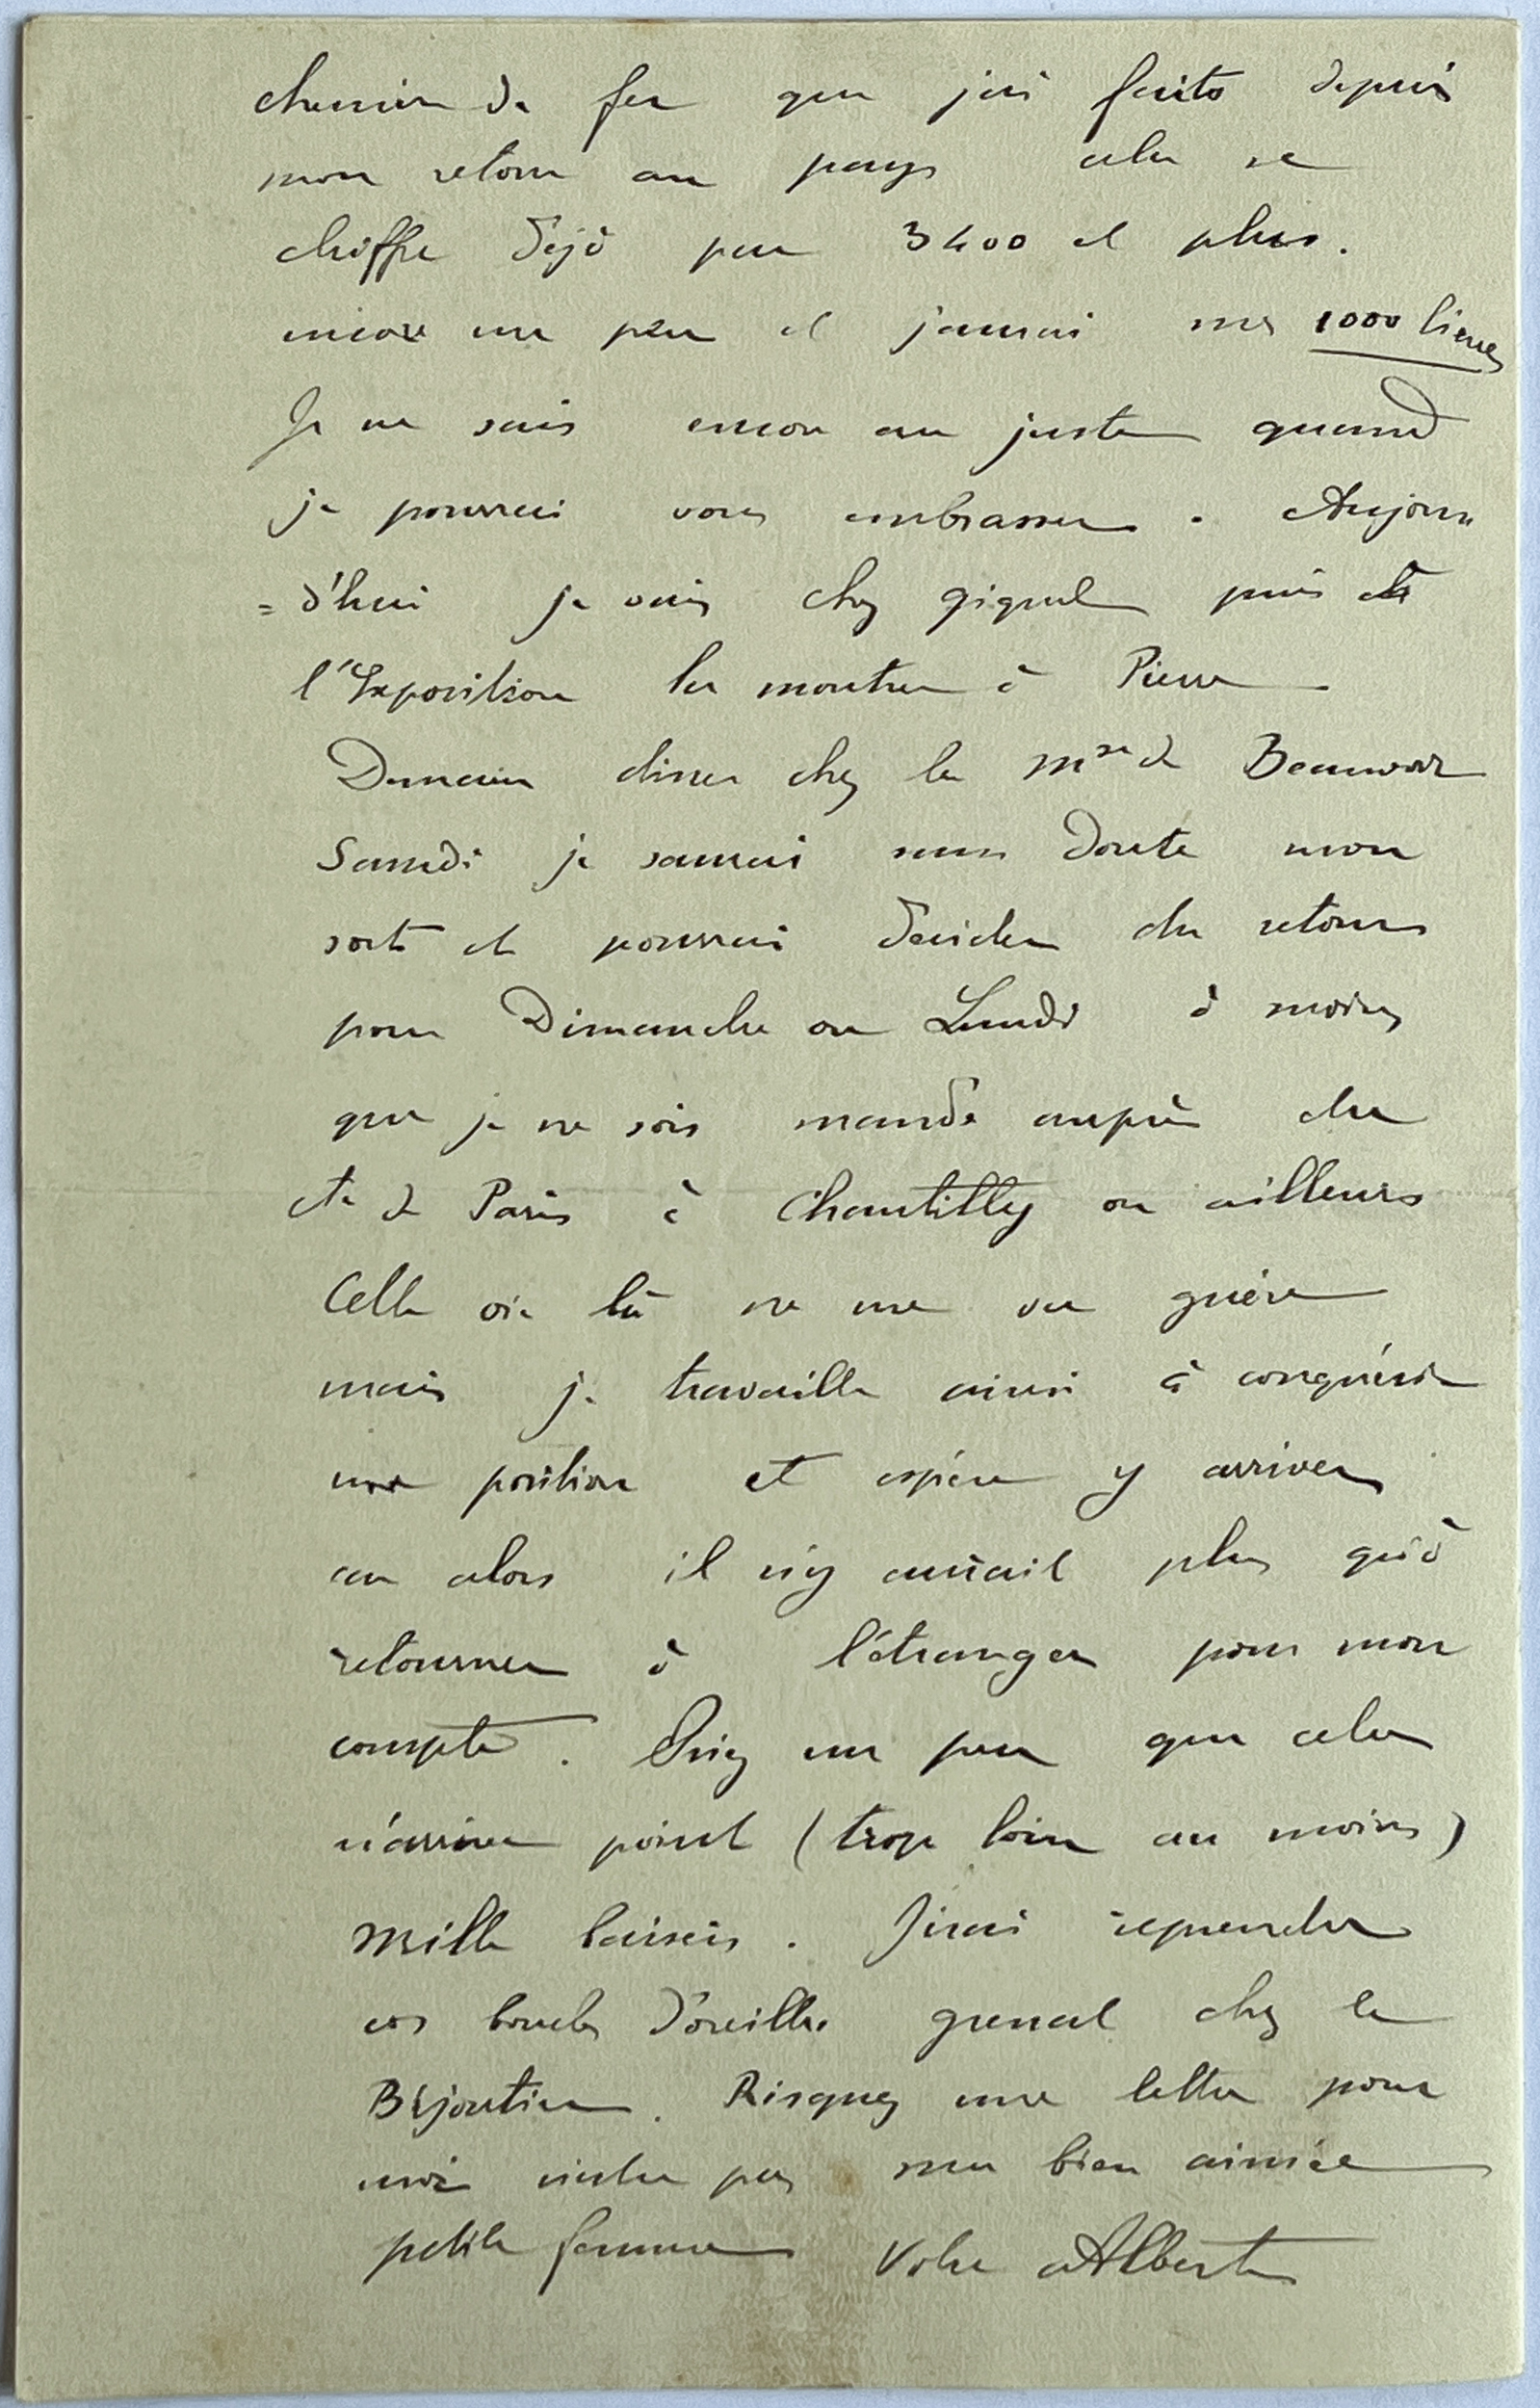 chemin de fer que j'ai faits depuis
mon retour au pays cela se
chiffre déjà par 3400 et plus.
encore un peu et j'aurai mes 1000 lieues
Je ne sais encore au juste quand
je pourrai vous embrasser. Aujour
= d'hui je vais chez giquel puis à
l'Exposition la montrer à Pierre
Demain diner chez le Mis de Beauvoir
Samedi je saurai sans doute mon
sort et pourrai décider du retour
pour Dimanche ou Lundi à moins
que je ne sois mandé auprès du
Cte de Paris à Chantilly ou ailleurs
Cette vie là ne me va guère
mais je travaille ainsi à conquérir
une position et espère y arriver
car alors il n'y aurait plus qu'à
retourner à l'étranger pour mon
compte. Priez un peu que cela
n'arrive point (trop loin au moins)
Mille baisers. J'irai reprendre
vos boucles d'oreilles grenat chez le
Bijoutier. Risquez une lettre pour
moi ma bien aimée
petite femme Votre Albert